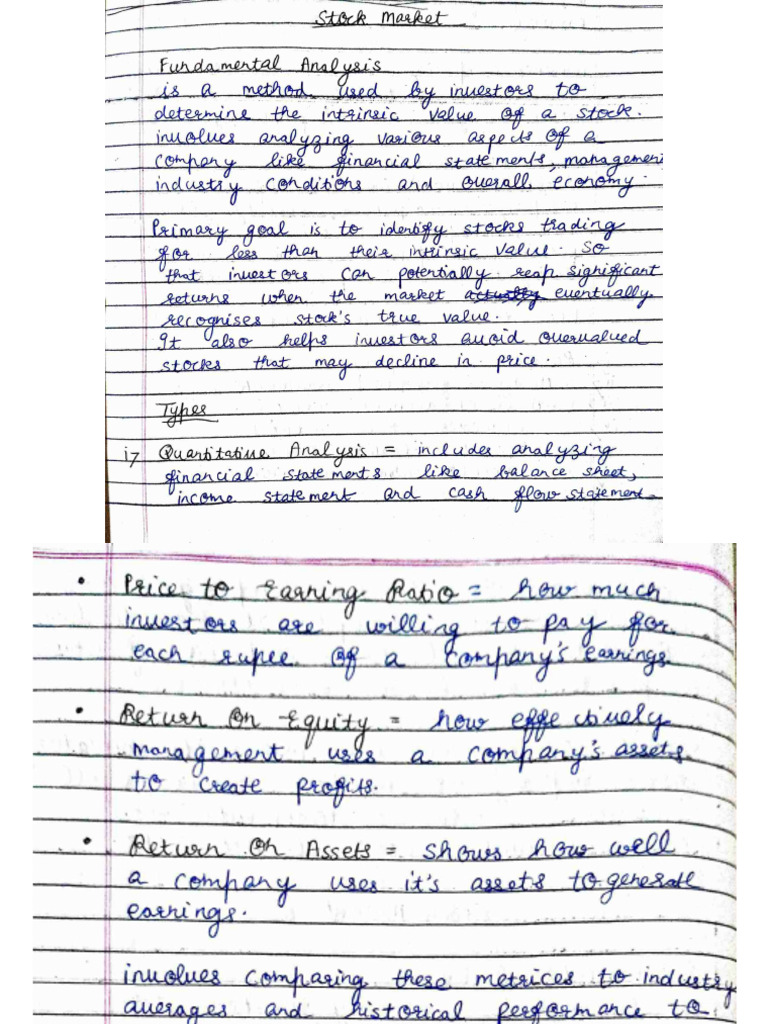 Stock Market
Fundamental Analysis
is a method used by investors to
determine the intrinsic value of a stock.
involves analyzing various aspects of a
company like financial statements, management
industry conditions and overall economy.
Primary goal is to identify stocks trading
for less than their intrinsic value. So
that investors can potentially reap significant
returns when the market actually eventually
recognises stock's true value.
It also helps investors avoid overvalued
stocks that may decline in price.
Types
i7 Quantitative Analysis = includes analyzing
financial statements like balance sheet,
income statement and cash flow statement.
• Price to Earning Ratio = how much
investors are willing to pay for
each rupee of a company's earnings.
• Return On Equity = how effectively
management uses a company's assets
to create profits.
• Return On Assets = shows how well
a company uses it's assets to generate
earnings.
involves comparing these metrices to industry
averages and historical performance to